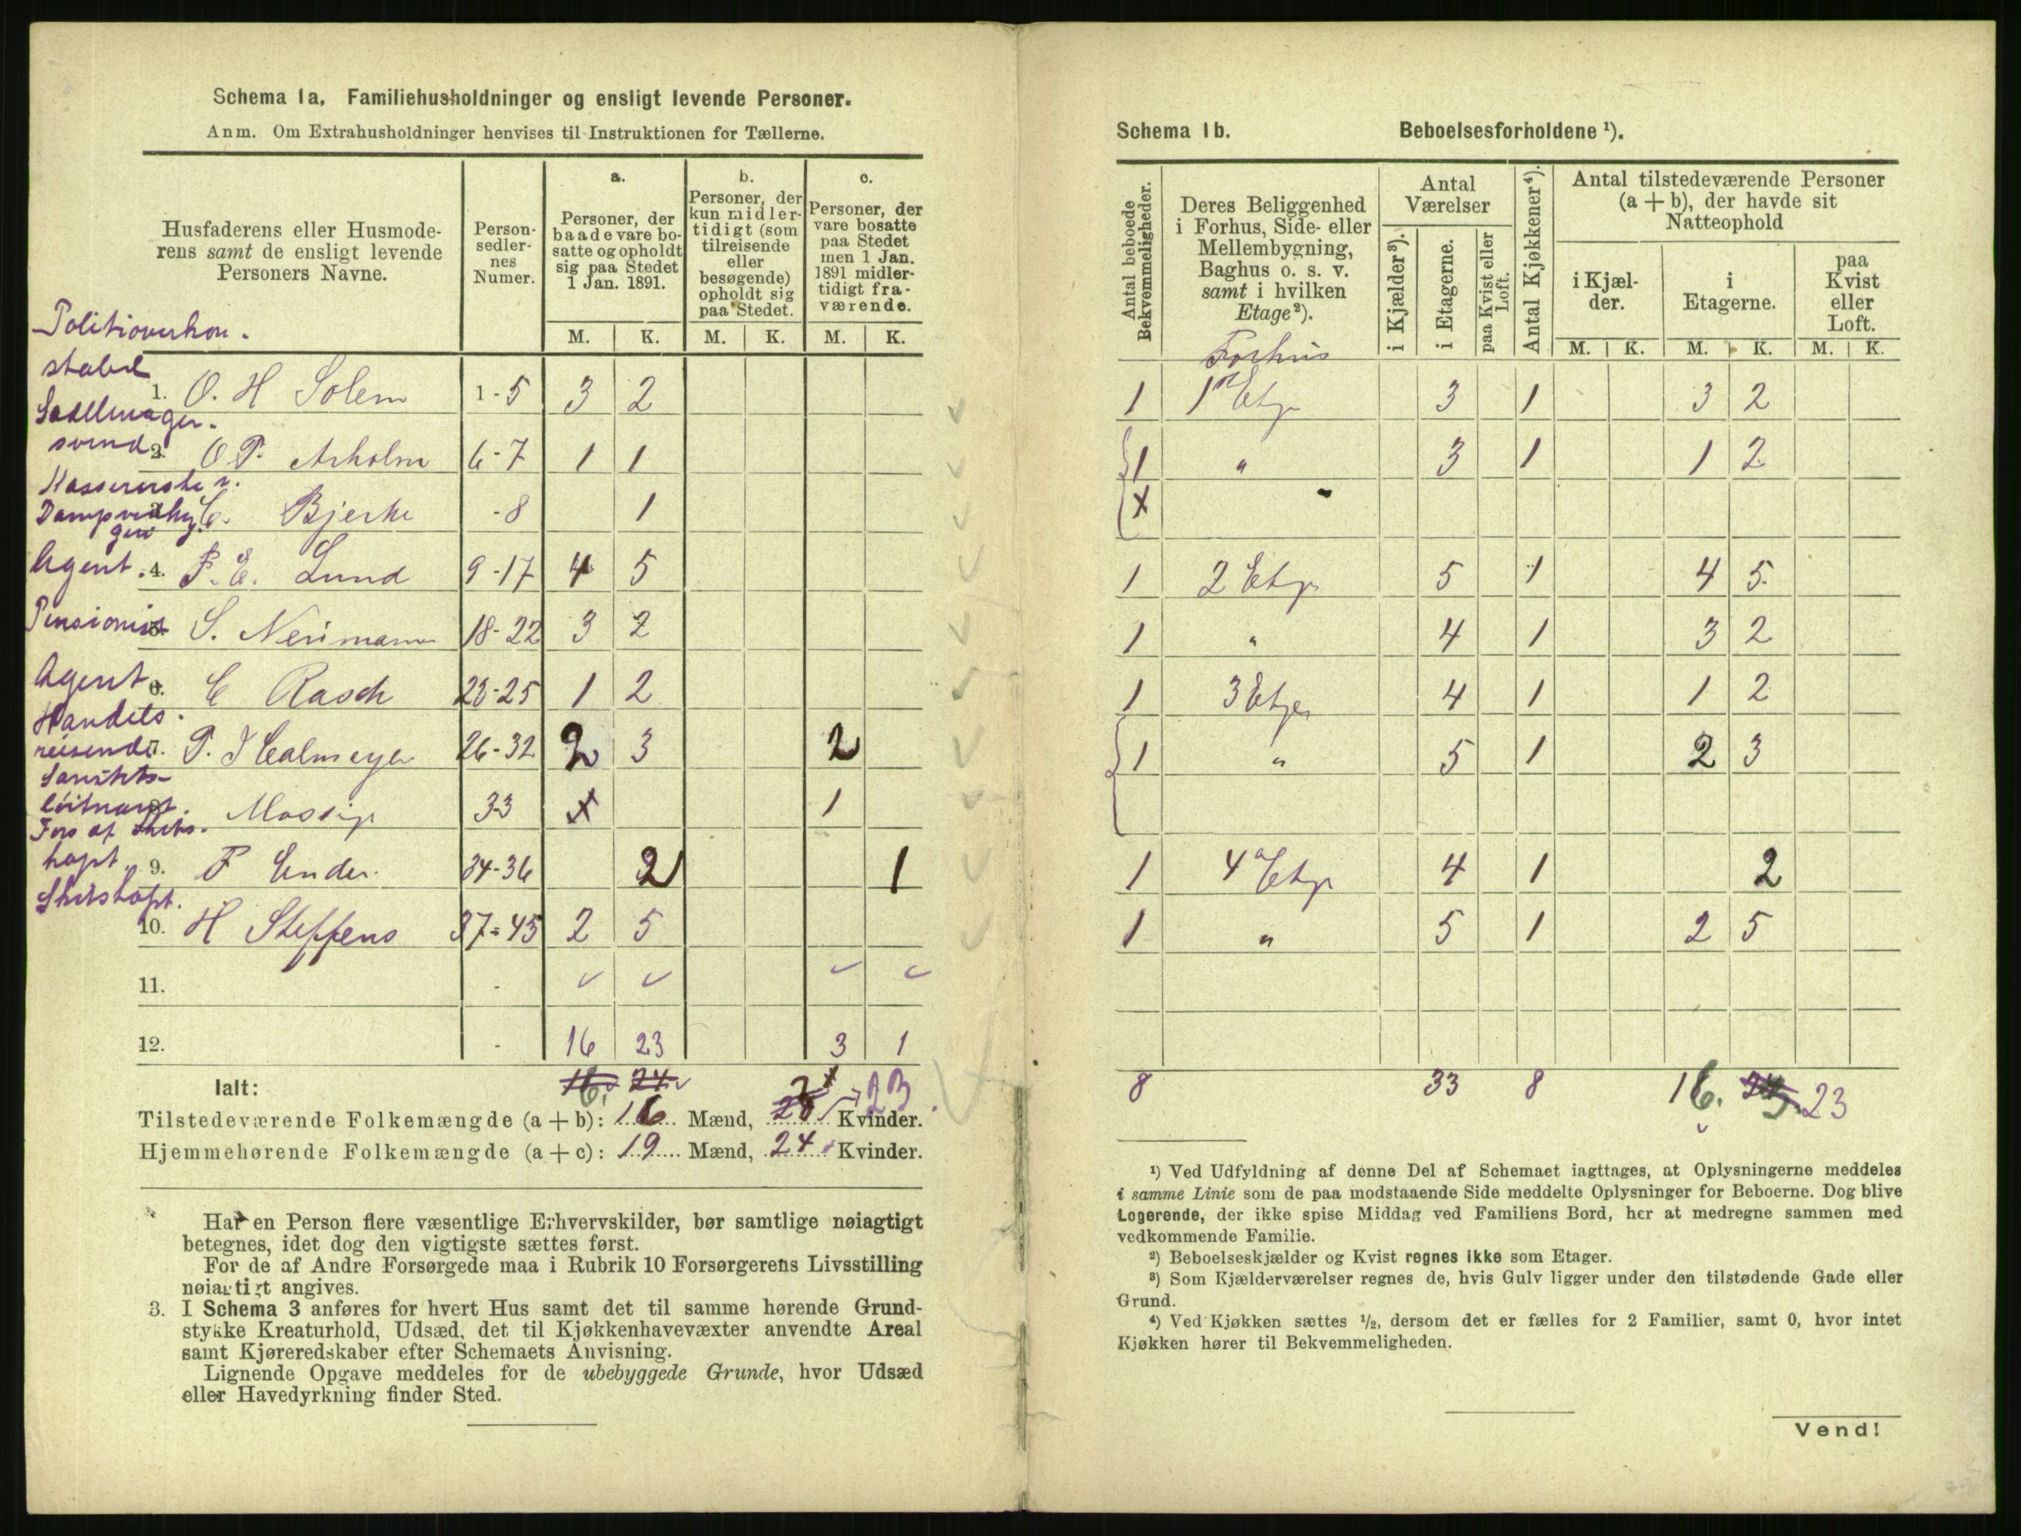 Schema 1a. Familiehusholdninger og ensligt levende Personer.
Anm. Om Extrahusholdninger henvises til Instruktionen for Tællerne.
Husfaderens eller Husmoderens samt de ensligt levende Personers Navne.
Person-sedler-nes Numer.
a. Personer, der baade vare bosatte og opholdt sig paa Stedet 1 Jan. 1891.
b. Personer, der kun midlertidigt (som tilreisende eller besøgende) opholdt sig paa Stedet.
c. Personer, der vare bosatte paa Stedet men 1 Jan. 1891 midlertidigt fraværende.
M. K. M. K. M. K.
Politioverkon.
stabel
1. O. H Solem 1-5 3 2
Sadelmager.
svend
2. O P. Arholm 6-7 1 1
Kassererske v.
Dampvedhuggeri
3. C. Bjerke -8 1
Agent.
4. F. E. Lund 9-17 4 5
Pensionist
5. S. Neumann 18-22 3 2
Agent
6. C Rasch 23-25 1 2
Handels.
reisende
7. P. J Calmeyer 26-32 2 3 2
Sanitets-
löitnant.
8. Mossige 33 x 1
Fors af Skibs.
kapt.
9. F Ender. 34-36 2 1
Skibskapt.
10. H Steffens 37-45 2 5
11.
12. 16 23 3 1
Ialt: 16 24
Tilstedeværende Folkemængde (a + b): 16 Mænd, 23 Kvinder.
Hjemmehørende Folkemængde (a + c): 19 Mænd, 24 Kvinder.
Har en Person flere væsentlige Erhvervskilder, bør samtlige nøiagtigt
betegnes, idet dog den vigtigste sættes først.
For de af Andre Forsørgede maa i Rubrik 10 Forsørgerens Livsstilling
nøiagtigt angives.
3. I Schema 3 anføres for hvert Hus samt det til samme hørende Grund-
stykke Kreaturhold, Udsæd, det til Kjøkkenhavevæxter anvendte Areal
samt Kjøreredskaber efter Schemaets Anvisning.
Lignende Opgave meddeles for de ubebyggede Grunde, hvor Udsæd
eller Havedyrkning finder Sted.
Schema 1b. Beboelsesforholdene ¹).
Antal beboede Bekvemmeligheder.
Deres Beliggenhed i Forhus, Side- eller Mellembygning, Baghus o. s. v. samt i hvilken Etage²).
Antal Værelser
i Kjælder³).
i Etagerne.
paa Kvist eller Loft.
Antal Kjøkkener⁴).
Antal tilstedeværende Personer (a + b), der havde sit Natteophold
i Kjælder.
i Etagerne.
paa Kvist eller Loft.
M. K. M. K. M. K.
Forhus
1 1ste Etge 3 1 3 2
1 " 3 1 1 2
x "
1 2 Etge 5 1 4 5
1 " 4 1 3 2
1 3 Etge 4 1 1 2
1 " 5 1 2 3
1 4 Etge 4 1 2
1 " 5 1 2 5
8 33 8 16. 24 23
¹) Ved Udfyldning af denne Del af Schemaet iagttages, at Oplysningerne meddeles
i samme Linie som de paa modstaaende Side meddelte Oplysninger for Beboerne. Dog blive
Logerende, der ikke spise Middag ved Familiens Bord, her at medregne sammen med
vedkommende Familie.
²) Beboelseskjælder og Kvist regnes ikke som Etager.
³) Som Kjælderværelser regnes de, hvis Gulv ligger under den tilstødende Gade eller
Grund.
⁴) Ved Kjøkken sættes ½, dersom det er fælles for 2 Familier, samt 0, hvor intet
Kjøkken hører til Bekvemmeligheden.
Vend!